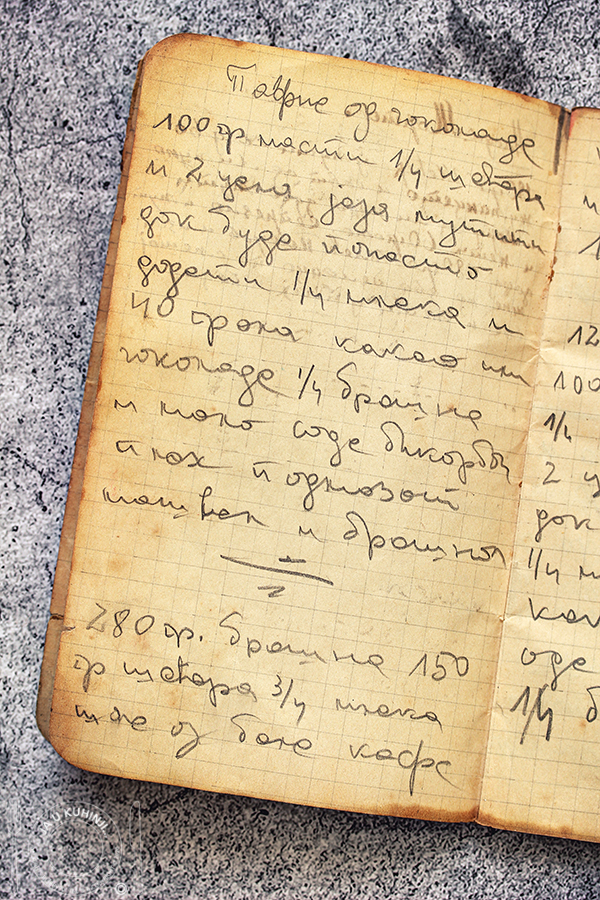 Паврне од чоколаде
100 гр масти 1/4 шећера
и 2 цела јаја мутити
док буде пенасто
додати 1/4 млека и
40 грома какао или
чоколаде 1/4 брашна
и мало соде бикорбе
плех подмазат
машћен и брашном
280 гр. брашна 150
гр шећера 3/4 млека
шоє
беле кафе
12
100
1/4
2 ц
док
1/4 м
как
оде
1/4 б
U KUHINJI